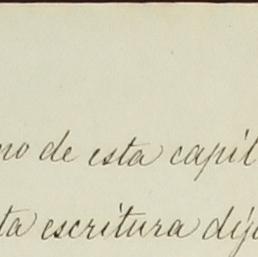 no de esta capil
ta escritura dij